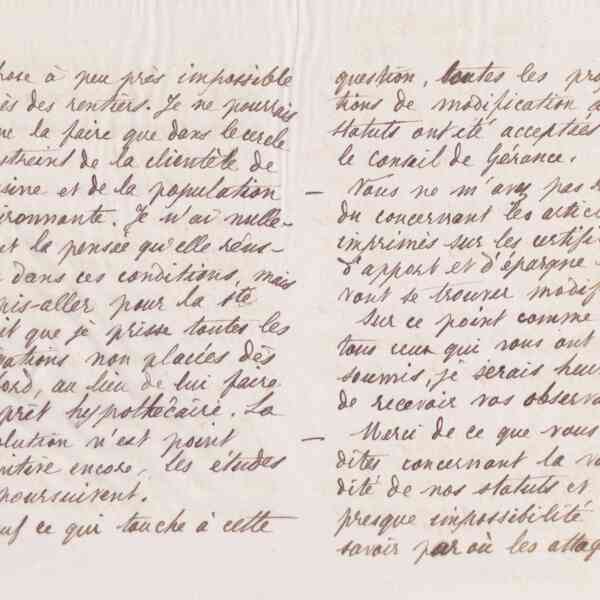 hose à peu près impossible
ès des rentiers. Je ne pourrais
ne la faire que dans le cercle
streint de la clientèle de
sine et de la population
ironnante. Je n'ai nulle-
nt la pensée qu'elle réus-
dans ces conditions, mais
pis-aller pour la sté
it que je prisse toutes les
gations non placées dès
ord, au lieu de lui faire
prêt hypothécaire. La
olution n'est point
nitive encore, les études
poursuivent.
uf ce qui touche à cette
question, toutes les pro
tions de modification a
statuts ont été acceptées
le conseil de Gérance.
— Vous ne m'avez pas r
du concernant les artic
imprimés sur les certifi
d'apport et d'épargne
vont se trouver modif
Sur ce point comme
tous ceux qui vous ont
soumis, je serais heu
de recevoir vos observa
— Merci de ce que vous
dites concernant la va
dité de nos statuts et
presque impossibilité
savoir par où les attaq